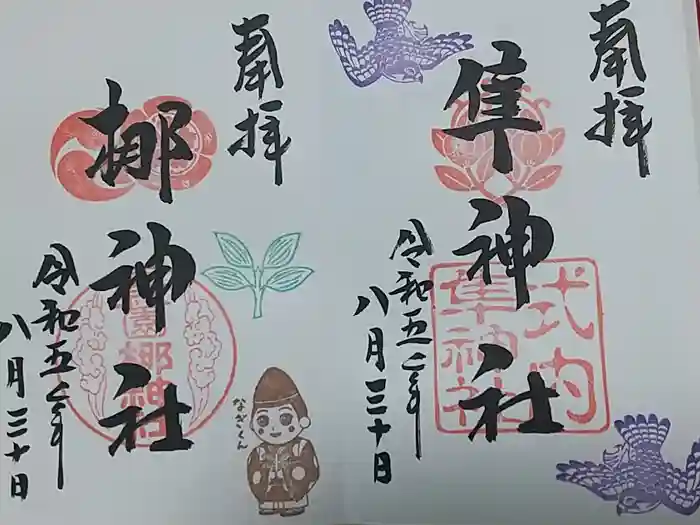 奉拝
隼神社
式内
隼神社
令和五年
八月三十日
奉拝
梛神社
令和五年
八月三十日
なぎくん